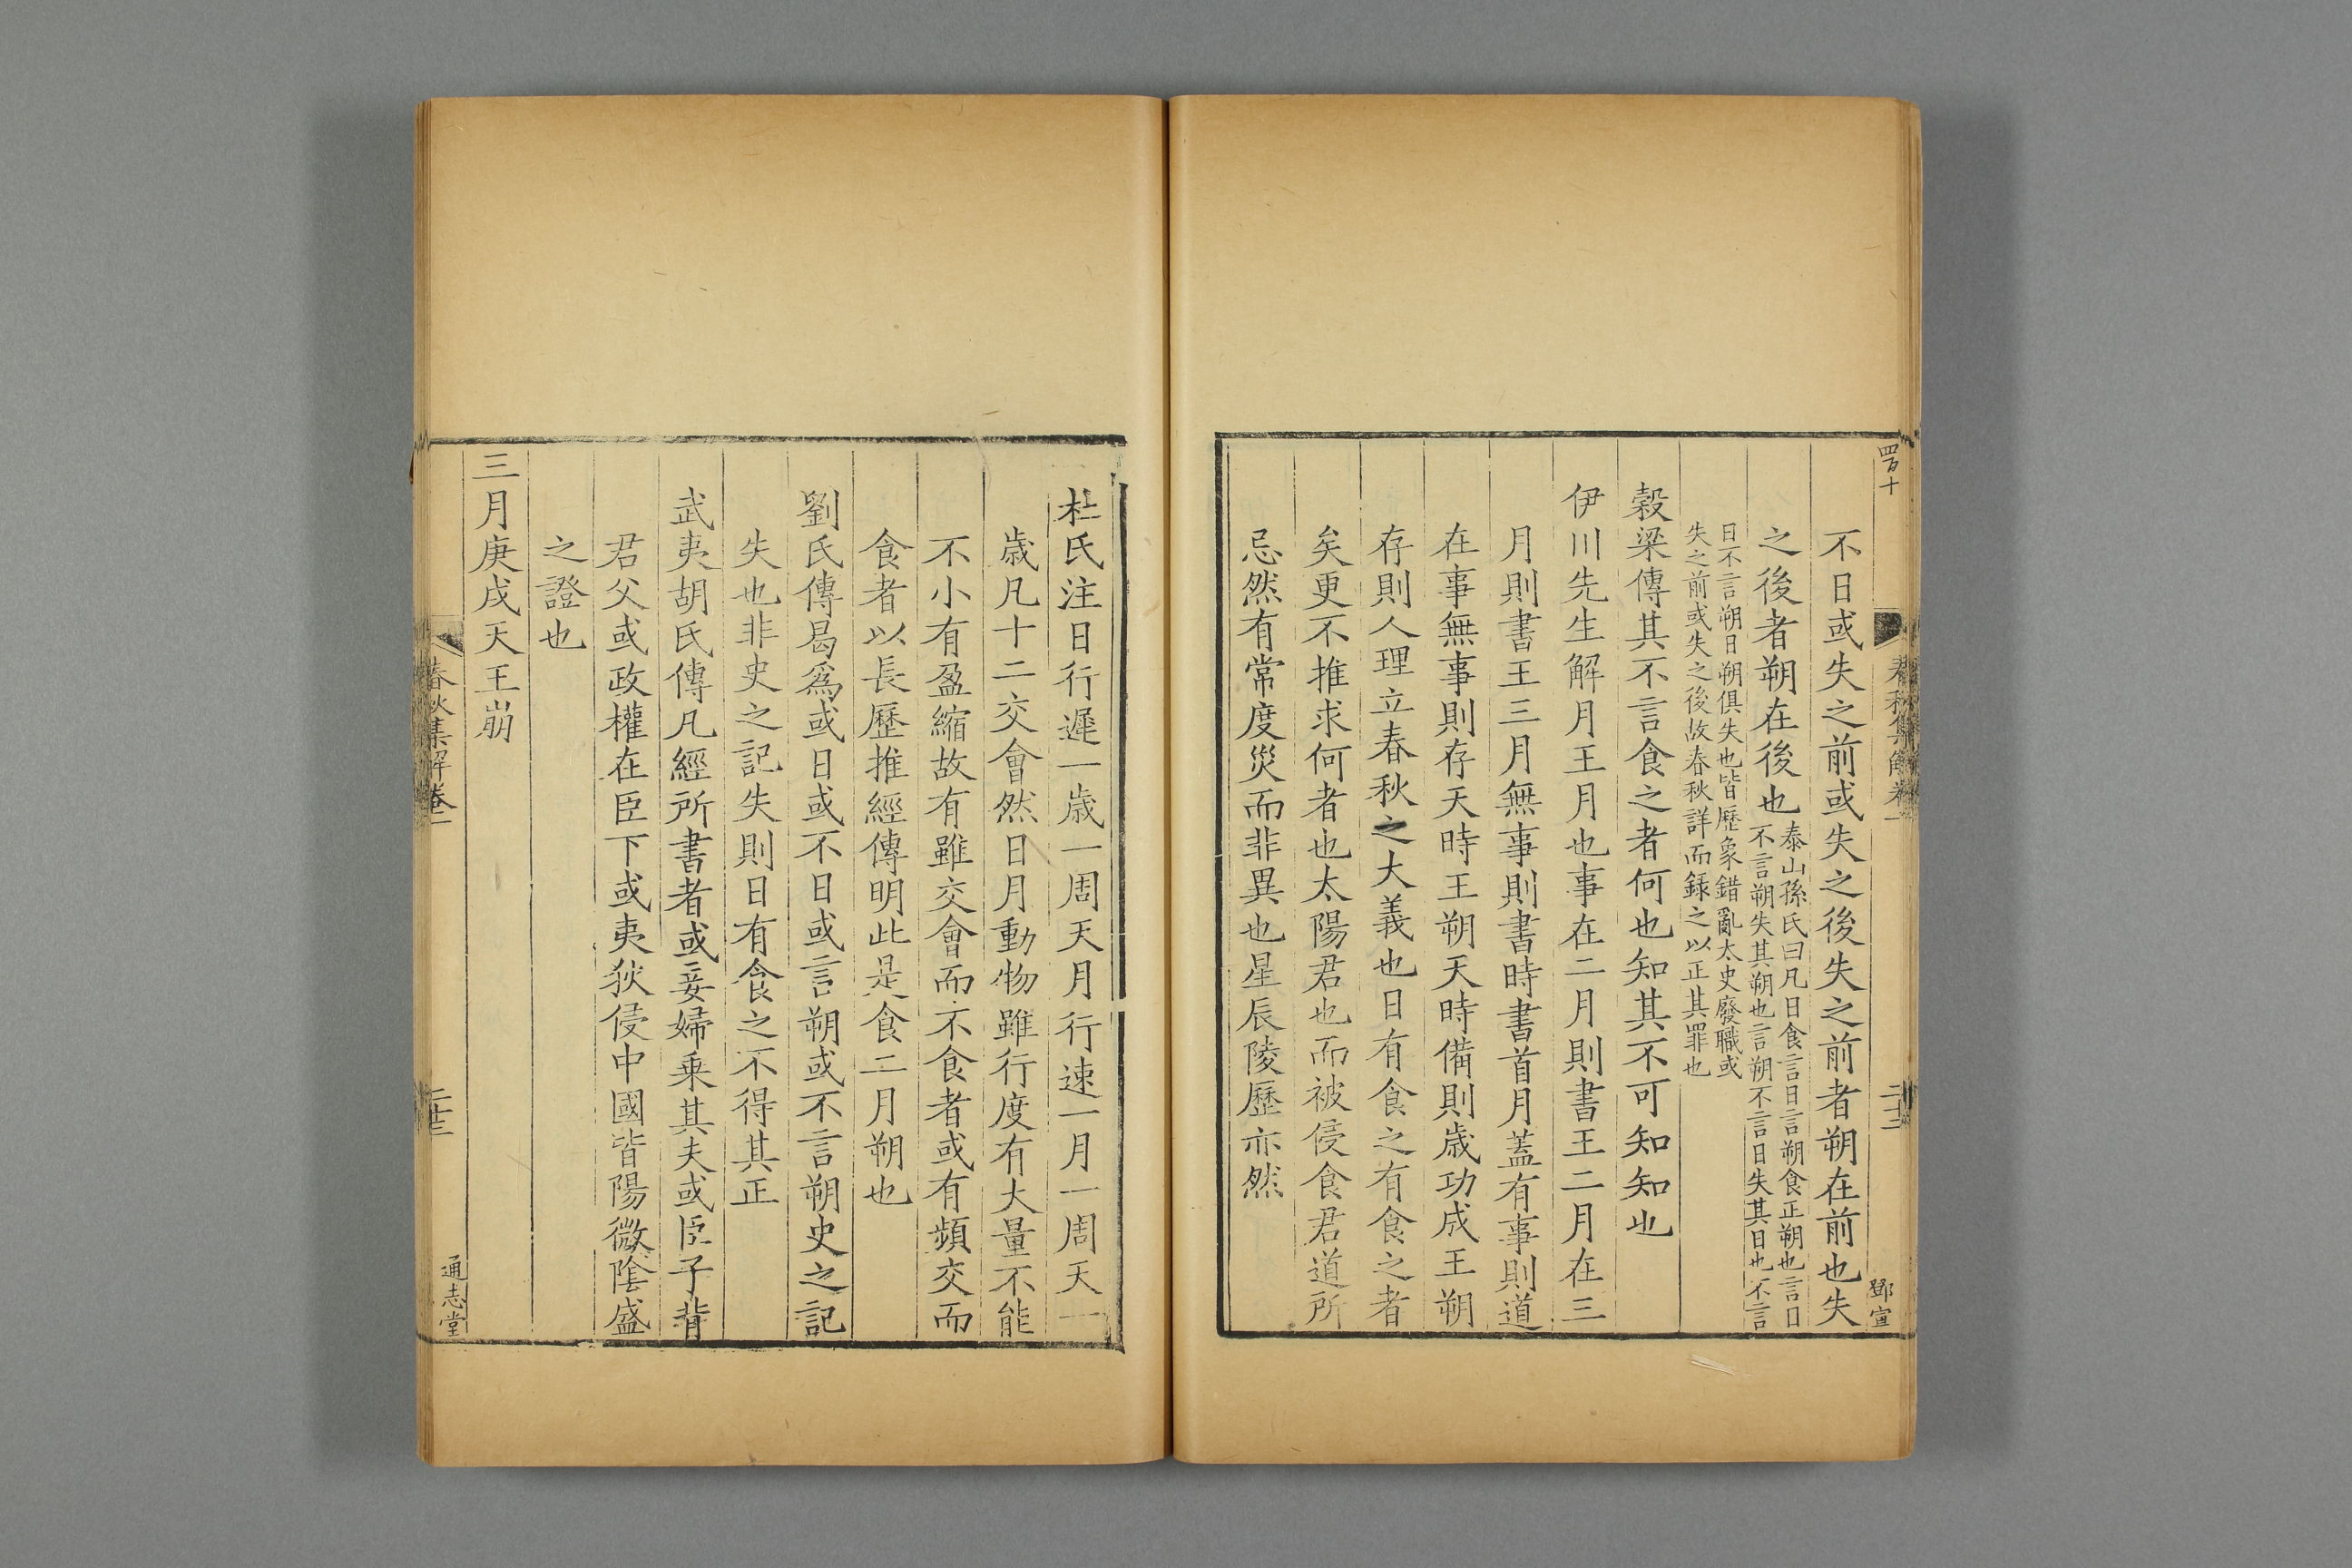 四百十
春秋集解卷一
二十二
鄧宣
不日或失之前或失之後失之前者朔在前也失
之後者朔在後也
泰山孫氏曰凡日食言日言朔食正朔也言日
不言朔失其朔也言朔不言日失其日也不言
日不言朔日朔俱失也皆歷象錯亂太史廢職或
失之前或失之後故春秋詳而録之以正其罪也
穀梁傳其不言食之者何也知其不可知知也
伊川先生解月王月也事在二月則書王二月在三
月則書王三月無事則書時書首月蓋有事則道
在事無事則存天時王朔天時備則歳功成王朔
存則人理立春秋之大義也日有食之有食之者
矣更不推求何者也太陽君也而被侵食君道所
忌然有常度災而非異也星辰陵歷亦然
杜氏注日行遲一歳一周天月行速一月一周天一
歳凡十二交會然日月動物雖行度有大量不能
不小有盈縮故有雖交會而不食者或有頻交而
食者以長歷推經傳明此是食二月朔也
劉氏傳曷爲或日或不日或言朔或不言朔史之記
失也非史之記失則日有食之不得其正
武夷胡氏傳凡經所書者或妾婦乗其夫或臣子背
君父或政權在臣下或夷狄侵中國皆陽微陰盛
之證也
三月庚戌天王崩
春秋集解卷一
二十三
通志堂